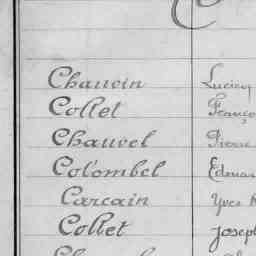 Chauvin Lucien
Collet Franço
Chauvel Pierre
Colombel Edouar
Carcain Yves
Collet Joseph